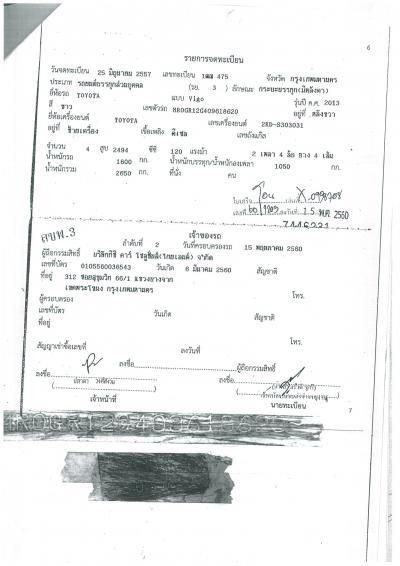 6
รายการจดทะเบียน
วันจดทะเบียน 25 มิถุนายน 2557 เลขทะเบียน 1ฒฒ 475 จังหวัด กรุงเทพมหานคร
ประเภท รถยนต์บรรทุกส่วนบุคคล (รย. 3 ) ลักษณะ กระบะบรรทุก(มีหลังคา)
ยี่ห้อรถ TOYOTA แบบ Vigo รุ่นปี ค.ศ. 2013
สี ขาว เลขตัวรถ อยู่ที่
ยี่ห้อเครื่องยนต์ TOYOTA เลขเครื่องยนต์ 2KD-S303031
อยู่ที่ เครื่อง เชื้อเพลิง ดีเซล เลขถังแก๊ส
จำนวน 4 สูบ 2494 ซีซี 120 แรงม้า 2 เพลา 4 ล้อ ยาง 4 เส้น
น้ำหนักรถ 1600 กก. น้ำหนักบรรทุก/น้ำหนักลงเพลา 1050 กก.
น้ำหนักรวม 2650 กก. ที่นั่ง คน
15 พ.ค. 2560
สบพ.3
เจ้าของรถ
ลำดับที่ 2 วันที่ครอบครองรถ 15 พฤษภาคม 2560
ผู้ถือกรรมสิทธิ์ จำกัด
เลขที่บัตร 0105560036543 วันเกิด 6 มีนาคม 2560 สัญชาติ
ที่อยู่ 312 ซอยสุขุมวิท 66/1 แขวงบางจาก
เขตพระโขนง กรุงเทพมหานคร โทร.
ผู้ครอบครอง
เลขที่บัตร วันเกิด สัญชาติ
ที่อยู่ โทร.
สัญญาเช่าซื้อเลขที่ ลงวันที่
ลงชื่อ ผู้ถือกรรมสิทธิ์
ลงชื่อ ลงชื่อ
เจ้าหน้าที่ นายทะเบียน
7